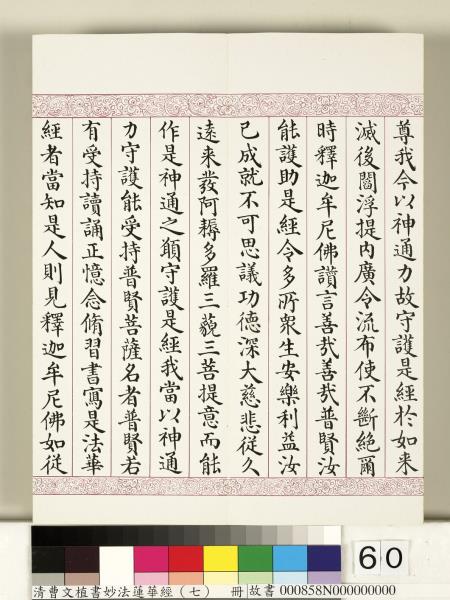 尊我今以神通力故守護是經於如來
滅後閻浮提內廣令流布使不斷絕爾
時釋迦牟尼佛讚言善哉善哉普賢汝
能護助是經令多所衆生安樂利益汝
已成就不可思議功德深大慈悲從久
遠來發阿耨多羅三藐三菩提意而能
作是神通之願守護是經我當以神通
力守護能受持普賢菩薩名者普賢若
有受持讀誦正憶念脩習書寫是法華
經者當知是人則見釋迦牟尼佛如從
60
清曹文植書妙法蓮華經（七） 冊 故書 000858N000000000